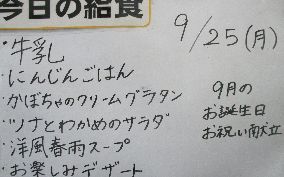 今日の給食
9/25(月)
・牛乳
・にんじんごはん
・かぼちゃのクリームグラタン
・ツナとわかめのサラダ
・洋風春雨スープ
・お楽しみデザート
9月の
お誕生日
お祝い献立